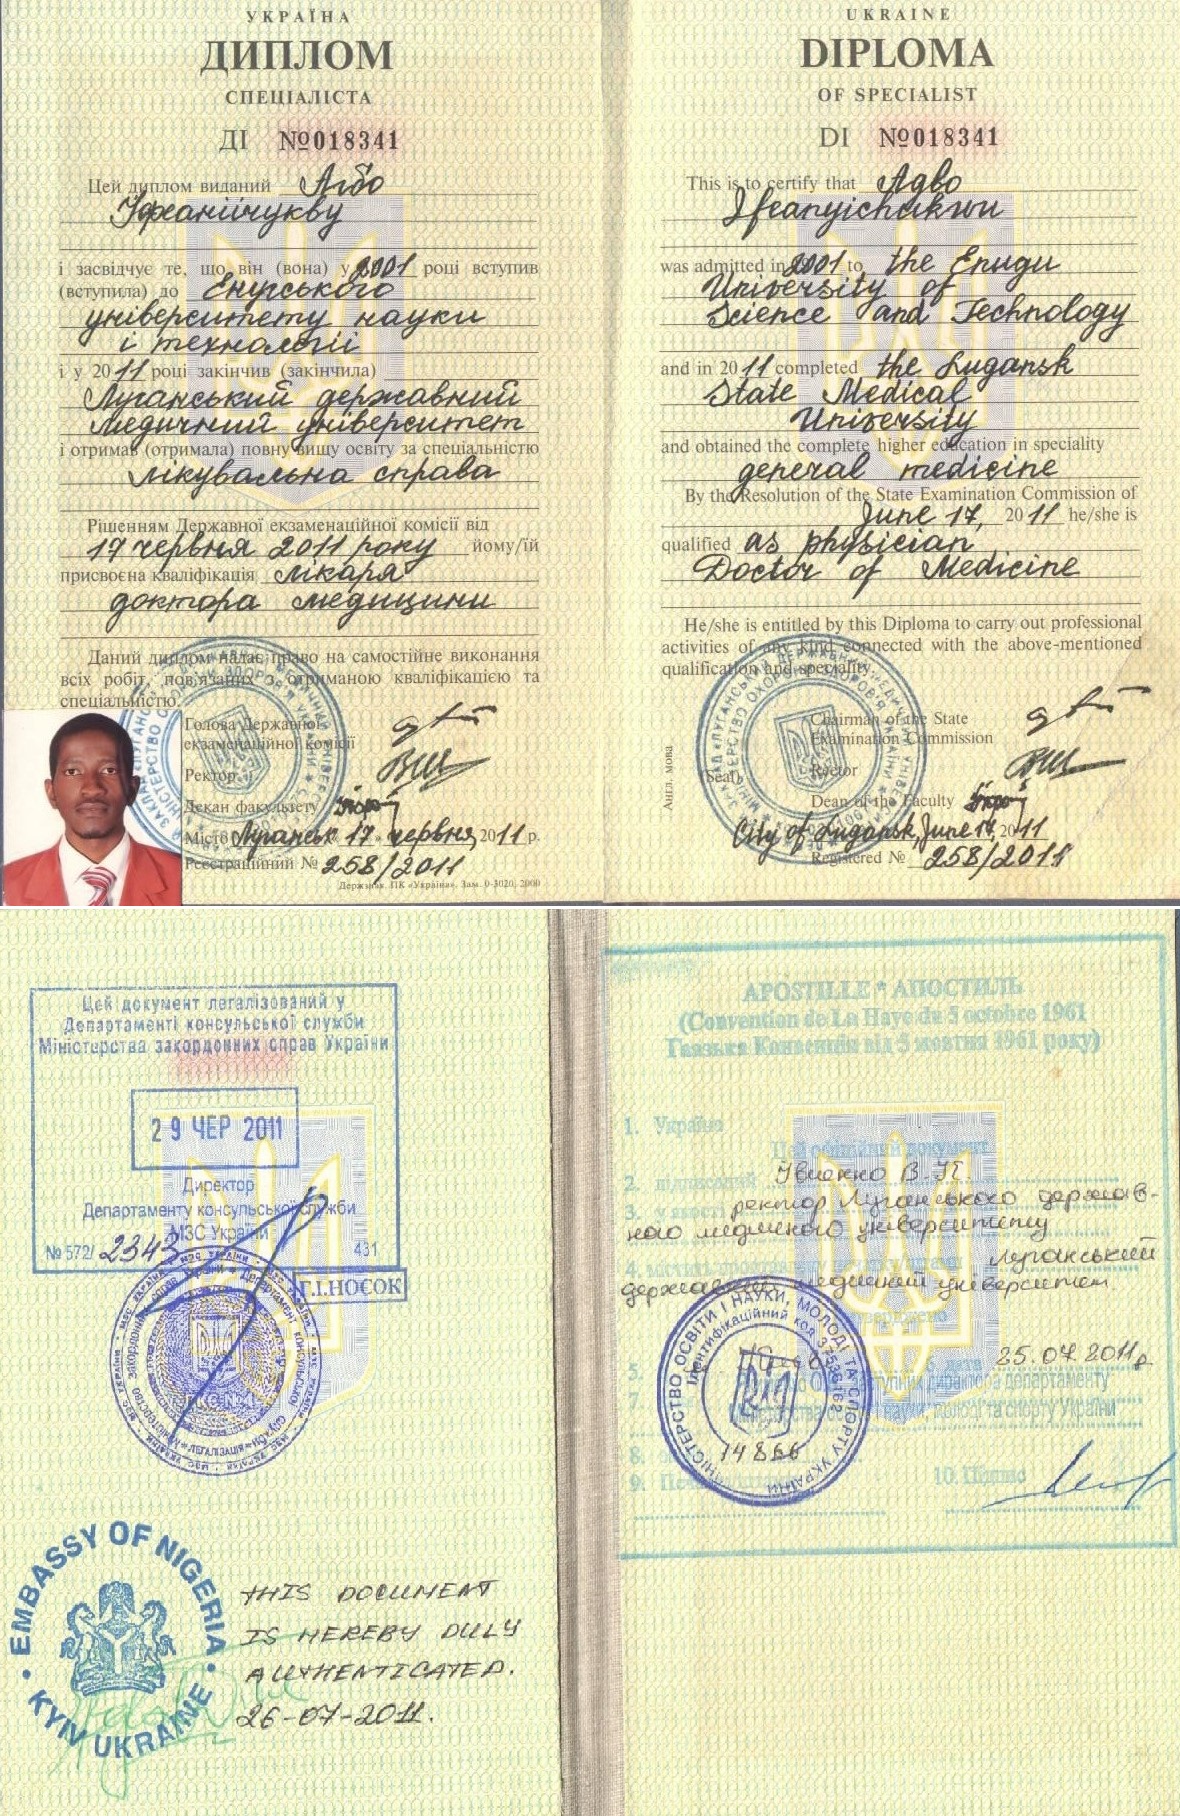 УКРАЇНА
ДИПЛОМ
СПЕЦІАЛІСТА
ДІ №018341
Цей диплом виданий Агбо
Іфеанійчукву
і засвідчує те, що він (вона) у 2001 році вступив
(вступила) до Енугського
університету науки
і технології
і у 2011 році закінчив (закінчила)
Луганський державний
медичний університет
і отримав (отримала) повну вищу освіту за спеціальністю
лікувальна справа
Рішенням Державної екзаменаційної комісії від
17 червня 2011 року йому/їй
присвоєна кваліфікація лікаря
доктора медицини
Даний диплом надає право на самостійне виконання
всіх робіт, пов'язаних з отриманою кваліфікацією та
спеціальністю.
Голова Державної
екзаменаційної комісії
Ректор
Декан факультету
Місто Луганськ 17 червня, 2011 р.
Реєстраційний № 258/2011
Держзнак. ПК «Україна». Зам. 0-3020, 2000
UKRAINE
DIPLOMA
OF SPECIALIST
DI №018341
This is to certify that Agbo
Ifeanyichukwu
was admitted in 2001 to the Enugu
University of
Science and Technology
and in 2011 completed the Lugansk
State Medical
University
and obtained the complete higher education in speciality
general medicine
By the Resolution of the State Examination Commission of
June 17, 2011 he/she is
qualified as physician
Doctor of Medicine
He/she is entitled by this Diploma to carry out professional
activities of any kind connected with the above-mentioned
qualification and speciality.
Chairman of the State
Examination Commission
(Seal) Rector
Dean of the Faculty
City of Lugansk, June 17, 2011
Registered № 258/2011
Англ. мова
Цей документ легалізований у
Департаменті консульської служби
Міністерства закордонних справ України
29 ЧЕР 2011
Директор
Департаменту консульської служби
МЗС України
№ 572/2343 431
Г.І.НОСОК
EMBASSY OF NIGERIA
KYIV UKRAINE
THIS DOCUMENT
IS HEREBY DULY
AUTHENTICATED.
26-07-2011.
APOSTILLE * АПОСТИЛЬ
(Convention de La Haye du 5 octobre 1961
Гаазька Конвенція від 5 жовтня 1961 року)
1. Україна
Цей офіційний документ
2. підписаний
3. у якості ректор Луганського держав-
ного медичного університету
4. Луганський
державний медичний університет
5. 6. дата 25.07.2011р
7. заступник директора департаменту
Міністерства освіти і науки, молоді та спорту України
8.
14866
9. 10. Підпис
МІНІСТЕРСТВО ОСВІТИ І НАУКИ, МОЛОДІ ТА СПОРТУ УКРАЇНИ
Ідентифікаційний код 37536162